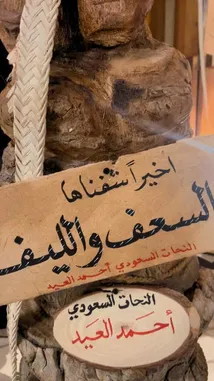 اخيراً شفناها
السعف والليف
النحات السعودي أحمد العيد
النحات السعودي
أحمد العيد